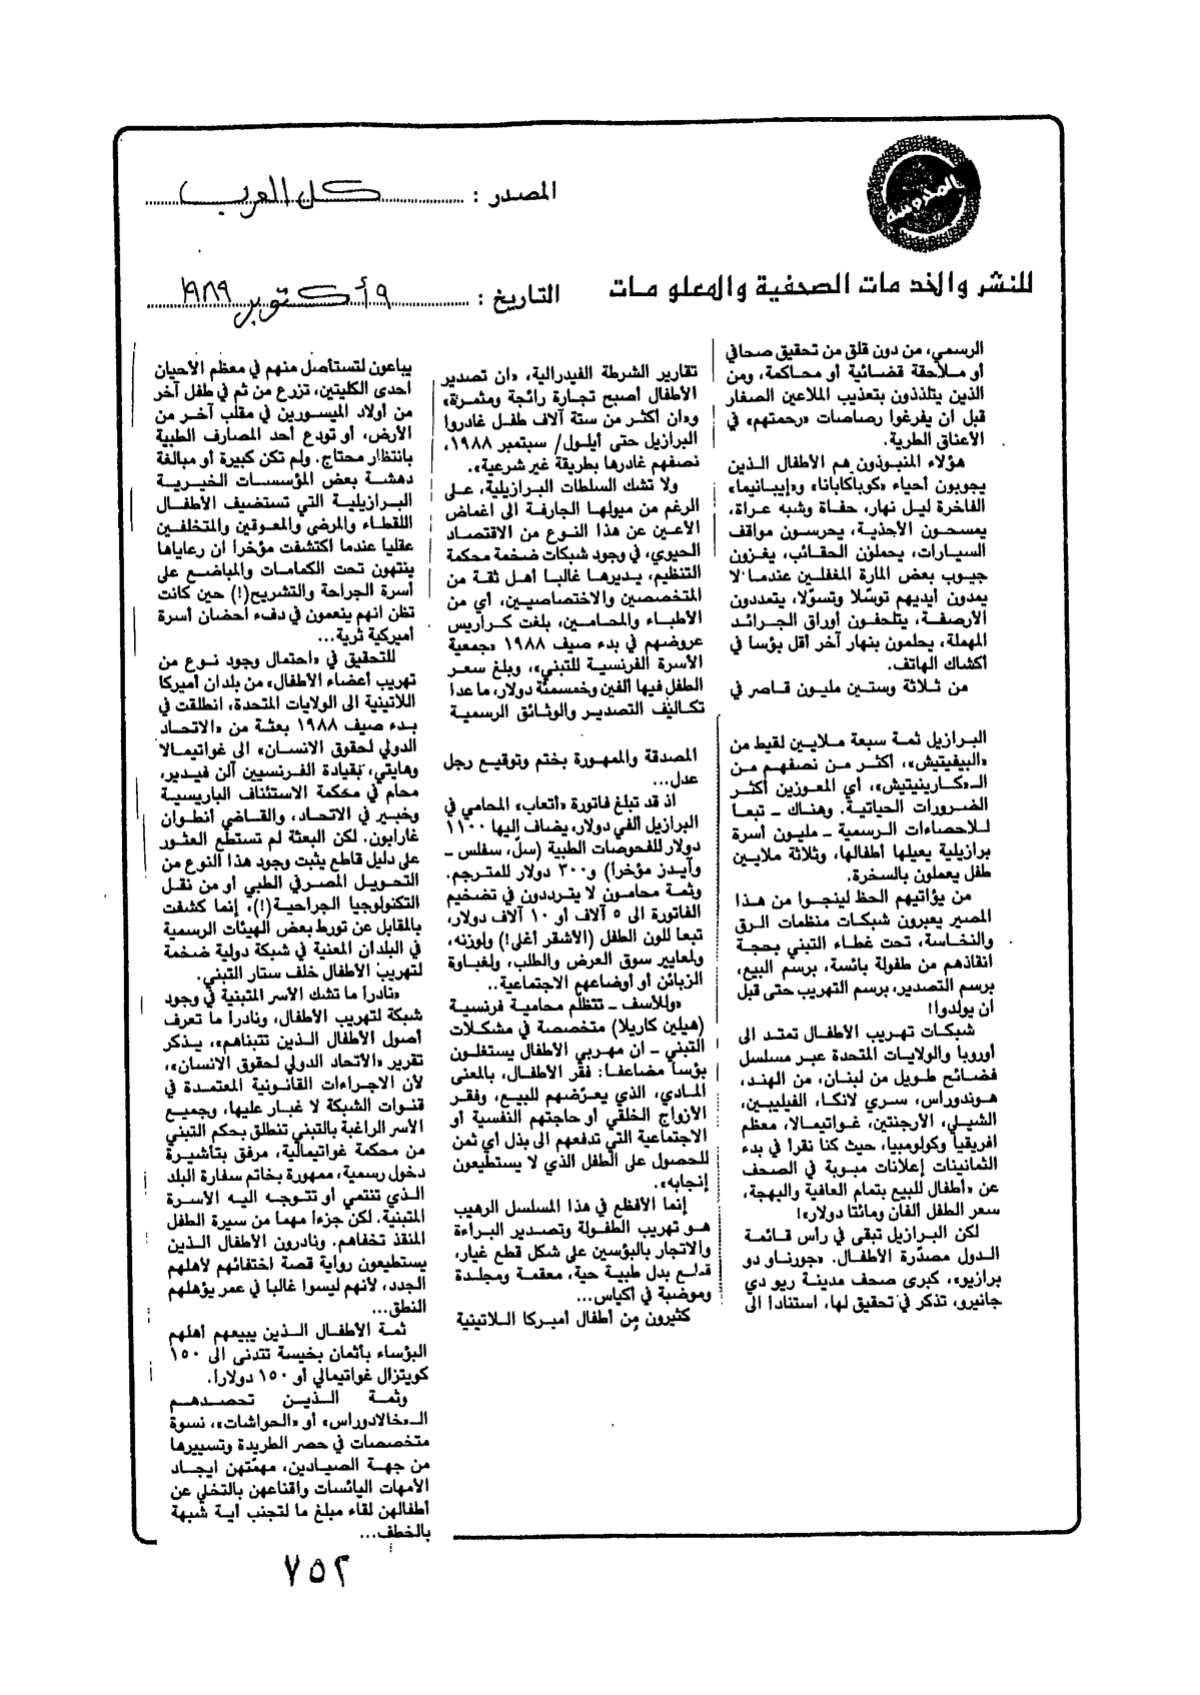 المحروسة
المصدر : كل العرب
للنشر والخدمات الصحفية والمعلومات
التاريخ : ٩ أكتوبر ١٩٨٩
الرسمي، من دون قلق من تحقيق صحافي
أو ملاحقة قضائية أو محاكمة، ومن
الذين يتلذذون بتعذيب الملاعين الصغار
قبل ان يفرغوا رصاصات «رحمتهم» في
الأعناق الطرية.
هؤلاء المنبوذون هم الأطفال الذين
يجوبون أحياء «كوباكابانا» و«إيبانيما»
الفاخرة ليل نهار، حفاة وشبه عراة،
يمسحون الأحذية، يحرسون مواقف
السيارات، يحملون الحقائب، يغزون
جيوب بعض المارة المغفلين عندما لا
يمدون أيديهم توسّلا وتسوّلا، يتمددون
الأرصفة، يتلحفون أوراق الجرائد
المهملة، يحلمون بنهار آخر أقل بؤسا في
أكشاك الهاتف.
من ثلاثة وستين مليون قاصر في
البرازيل ثمة سبعة ملايين لقيط من
«البيفيتيش»، أكثر من نصفهم من
الـ«كارينيتيش»، أي المعوزين أكثر
الضرورات الحياتية. وهناك ــ تبعا
للاحصاءات الرسمية ــ مليون أسرة
برازيلية يعيلها أطفالها، وثلاثة ملايين
طفل يعملون بالسخرة.
من يؤاتيهم الحظ لينجوا من هذا
المصير يعبرون شبكات منظمات الرق
والنخاسة، تحت غطاء التبني بحجة
انقاذهم من طفولة بائسة، برسم البيع،
برسم التصدير، برسم التهريب حتى قبل
ان يولدوا!
شبكات تهريب الأطفال تمتد الى
أوروبا والولايات المتحدة عبر مسلسل
فضائح طويل من لبنان، من الهند،
هوندوراس، سري لانكا، الفيليبين،
الشيلي، الأرجنتين، غواتيمالا، معظم
افريقيا وكولومبيا، حيث كنا نقرأ في بدء
الثمانينات إعلانات مبوبة في الصحف
عن «أطفال للبيع بتمام العافية والبهجة،
سعر الطفل الفان ومائتا دولار»!
لكن البرازيل تبقى في رأس قائمة
الدول مصدّرة الأطفال. «جورناو دو
برازيو»، كبرى صحف مدينة ريو دي
جانيرو، تذكر في تحقيق لها، استناداً الى
تقارير الشرطة الفيدرالية، «ان تصدير
الأطفال أصبح تجارة رائجة ومثمرة»
و«ان اكثر من ستة آلاف طفل غادروا
البرازيل حتى أيلول/ سبتمبر ١٩٨٨،
نصفهم غادرها بطريقة غير شرعية».
ولا تشك السلطات البرازيلية، على
الرغم من ميولها الجارفة الى اغماض
الأعين عن هذا النوع من الاقتصاد
الحيوي، في وجود شبكات ضخمة محكمة
التنظيم، يديرها غالبا أهل ثقة من
المتخصصين والاختصاصيين، أي من
الأطباء والمحامين، بلغت كراريس
عروضهم في بدء صيف ١٩٨٨ «جمعية
الأسرة الفرنسية للتبني»، وبلغ سعر
الطفل فيها ألفين وخمسمئة دولار، ما عدا
تكاليف التصدير والوثائق الرسمية
المصدقة والممهورة بختم وتوقيع رجل
عدل...
اذ قد تبلغ فاتورة «أتعاب» المحامي في
البرازيل ألفي دولار، يضاف إليها ١١٠٠
دولار للفحوصات الطبية (سل، سفلس ــ
وآيدز مؤخراً) و٣٠٠ دولار للمترجم.
وثمة محامون لا يترددون في تضخيم
الفاتورة الى ٥ آلاف أو ١٠ آلاف دولار،
تبعا للون الطفل (الأشقر أغلى!) ولوزنه،
ولمعايير سوق العرض والطلب، ولغباوة
الزبائن أو أوضاعهم الاجتماعية..
«وللأسف ــ تتظلّم محامية فرنسية
(هيلين كاريلا) متخصصة في مشكلات
التبني ــ ان مهربي الأطفال يستغلون
بؤساً مضاعفا: فقر الأطفال، بالمعنى
المادي، الذي يعرّضهم للبيع، وفقر
الأزواج الخلقي أو حاجتهم النفسية أو
الاجتماعية التي تدفعهم الى بذل أي ثمن
للحصول على الطفل الذي لا يستطيعون
إنجابه».
إنما الأفظع في هذا المسلسل الرهيب
هو تهريب الطفولة وتصدير البراءة
والاتجار بالبؤسين على شكل قطع غيار،
قطع بدل طبية حية، معقمة ومجلدة
وموضبة في أكياس...
كثيرون من أطفال أميركا اللاتينية
يباعون لتستأصل منهم في معظم الأحيان
احدى الكليتين، تزرع من ثم في طفل آخر
من أولاد الميسورين في مقلب آخر من
الأرض، أو تودع أحد المصارف الطبية
بانتظار محتاج. ولم تكن كبيرة أو مبالغة
دهشة بعض المؤسسات الخيرية
البرازيلية التي تستضيف الأطفال
اللقطاء والمرضى والمعوقين والمتخلفين
عقليا عندما اكتشفت مؤخراً ان رعاياها
ينتهون تحت الكمامات والمباضع على
أسرة الجراحة والتشريح(!) حين كانت
تظن انهم ينعمون في دفء أحضان أسرة
أميركية ثرية...
للتحقيق في «احتمال وجود نوع من
تهريب أعضاء الأطفال» من بلدان أميركا
اللاتينية الى الولايات المتحدة، انطلقت في
بدء صيف ١٩٨٨ بعثة من «الاتحاد
الدولي لحقوق الانسان» الى غواتيمالا
وهايتي، بقيادة الفرنسيين آلن فيدير،
محام في محكمة الاستئناف الباريسية
وخبير في الاتحاد، والقاضي أنطوان
غارابون. لكن البعثة لم تستطع العثور
على دليل قاطع يثبت وجود هذا النوع من
التحويل المصرفي الطبي أو من نقل
التكنولوجيا الجراحية(!)، إنما كشفت
بالمقابل عن تورط بعض الهيئات الرسمية
في البلدان المعنية في شبكة دولية ضخمة
لتهريب الأطفال خلف ستار التبني.
«نادراً ما تشك الأسر المتبنية في وجود
شبكة لتهريب الأطفال، ونادراً ما تعرف
أصول الأطفال الذين تتبناهم»، يذكر
تقرير «الاتحاد الدولي لحقوق الانسان»،
لأن الاجراءات القانونية المعتمدة في
قنوات الشبكة لا غبار عليها، وجميع
الأسر الراغبة بالتبني تنطلق بحكم التبني
من محكمة غواتيمالية، مرفق بتأشيرة
دخول رسمية، ممهورة بخاتم سفارة البلد
الذي تنتمي أو تتوجه اليه الأسرة
المتبنية. لكن جزءاً مهما من سيرة الطفل
المنقذ تخفاهم. ونادرون الأطفال الذين
يستطيعون رواية قصة اختفائهم لأهلهم
الجدد، لأنهم ليسوا غالبا في عمر يؤهلهم
النطق...
ثمة الأطفال الذين يبيعهم أهلهم
البؤساء بأثمان بخيسة تتدنى الى ١٥٠
كويتزال غواتيمالي أو ١٥٠ دولاراً.
وثمة الذين تحصدهم
الـ«خالادوراس» أو «الحواشات»، نسوة
متخصصات في حصر الطريدة وتسييرها
من جهة الصيادين، مهمّتهن ايجاد
الأمهات اليائسات واقناعهن بالتخلي عن
أطفالهن لقاء مبلغ ما لتجنب أية شبهة
بالخطف...
٧٥٢